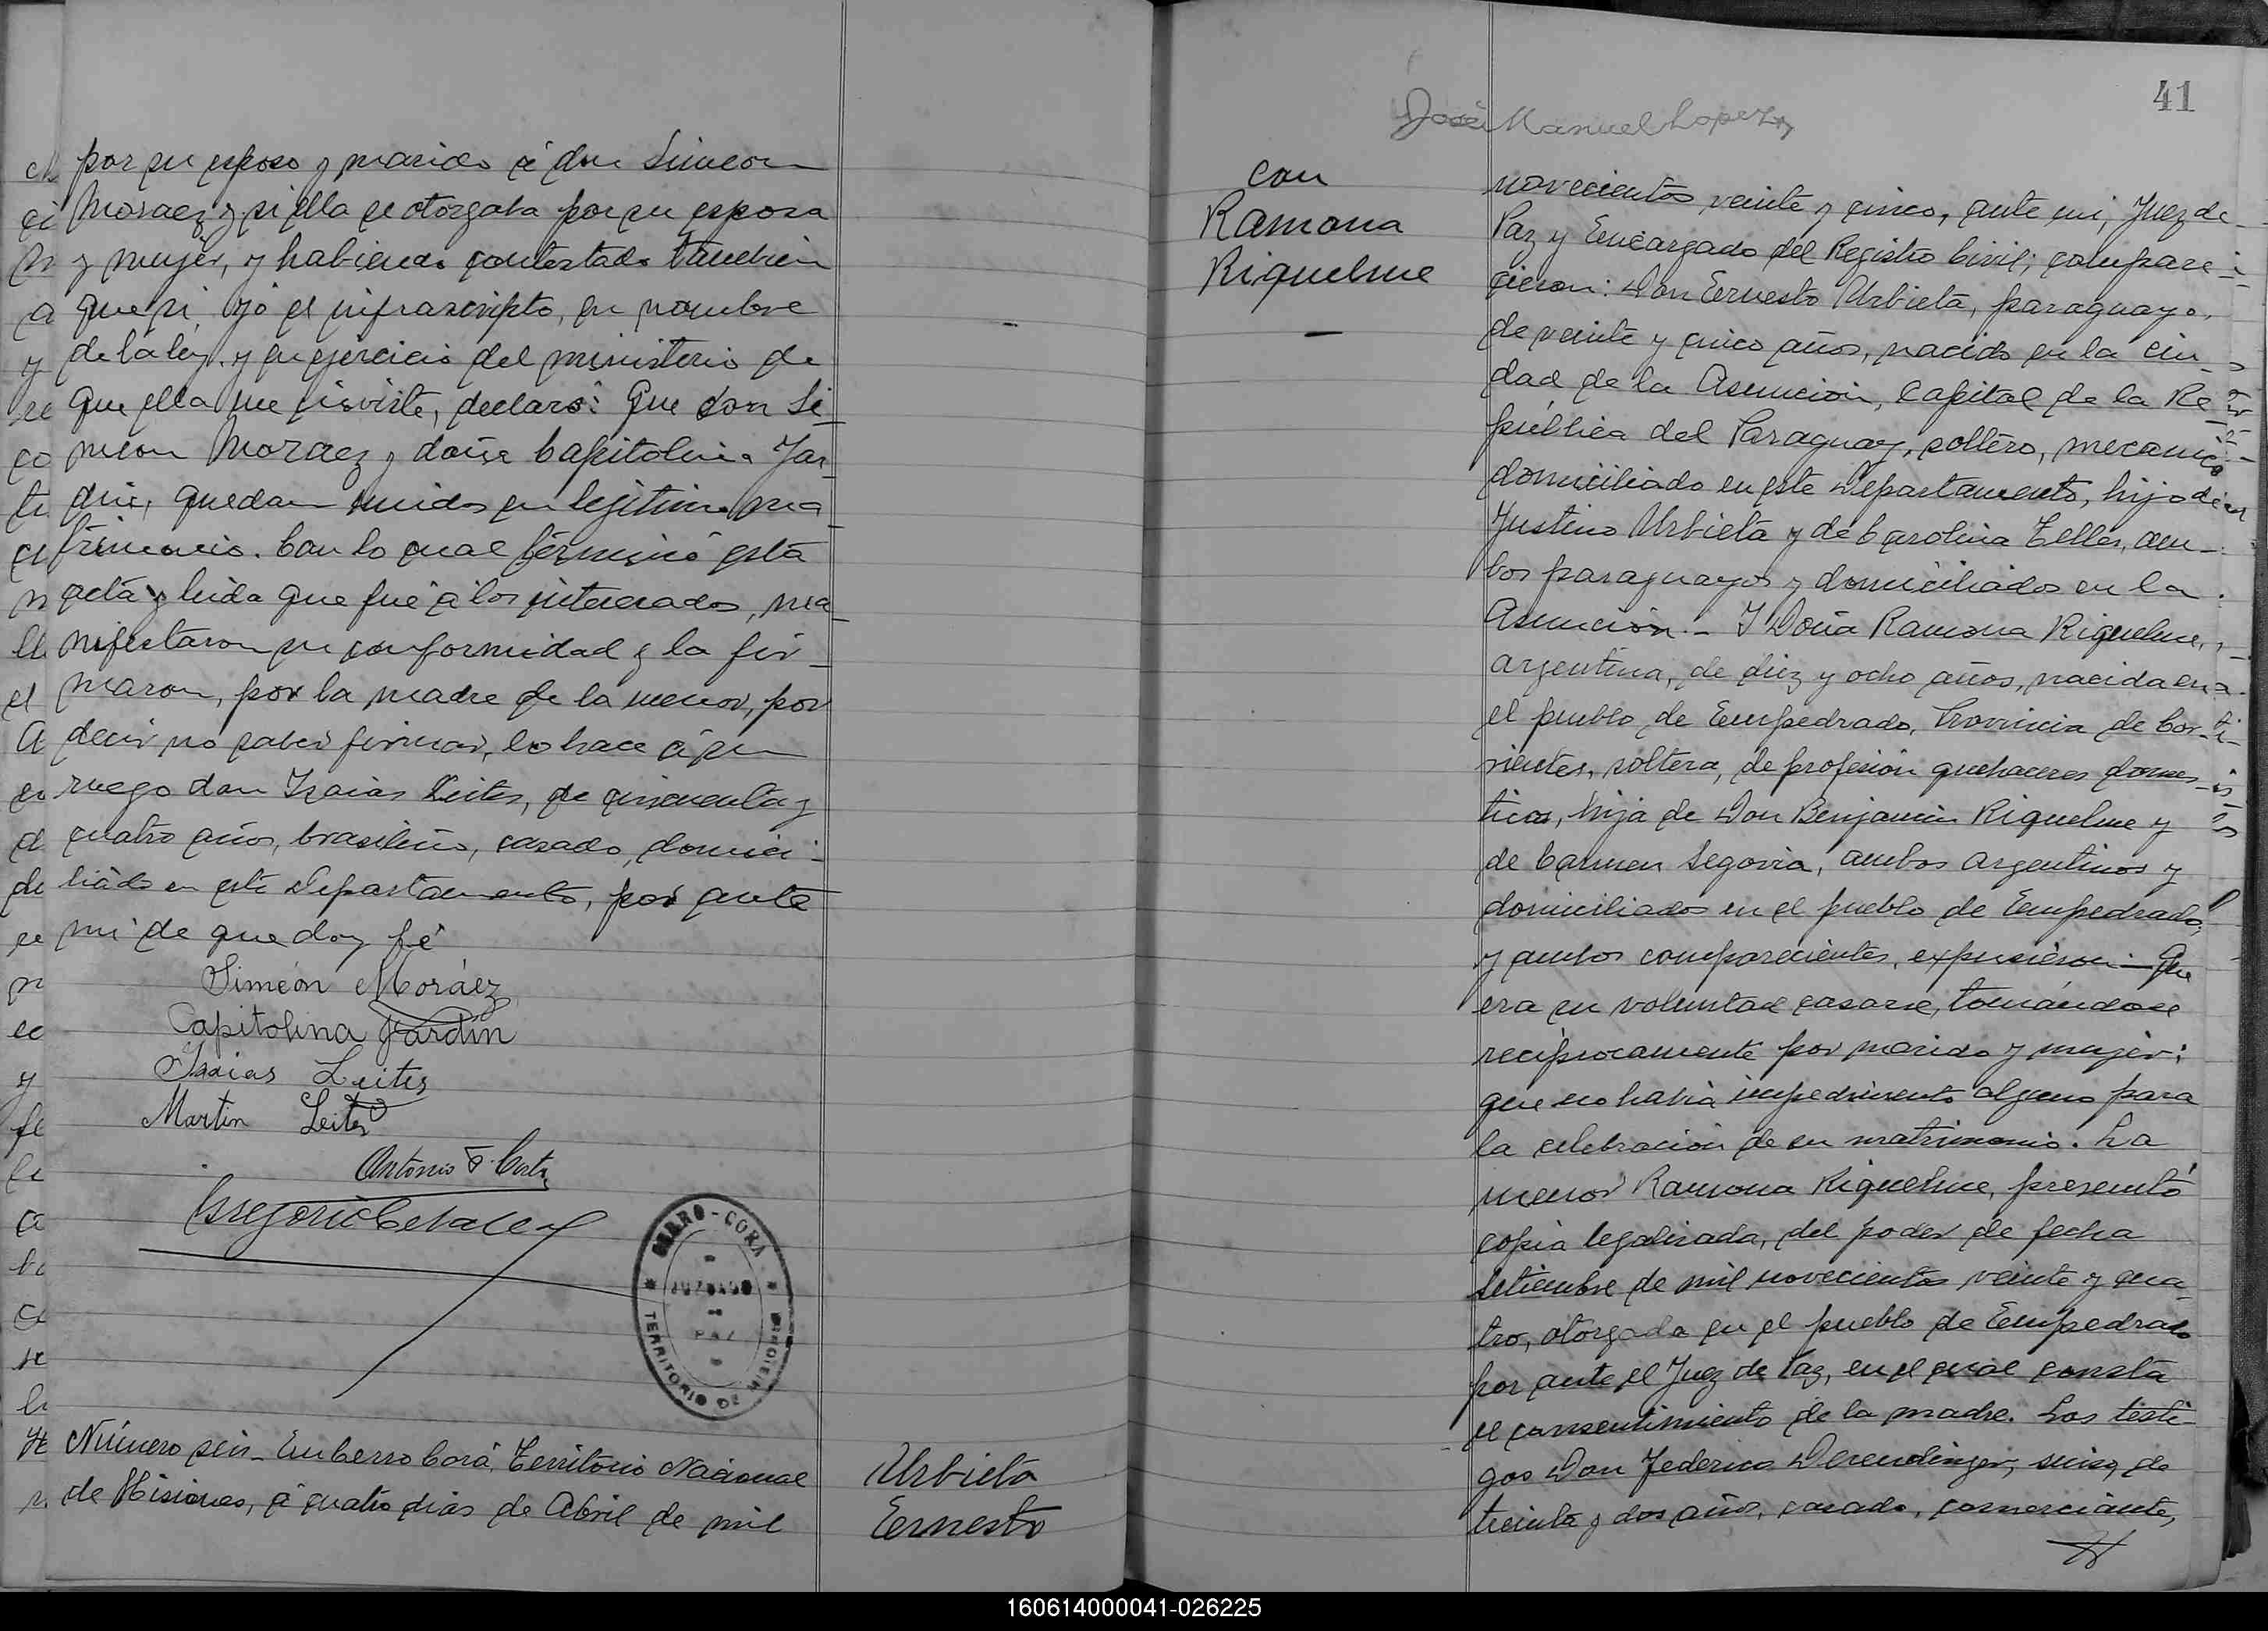 por su esposo y marido á don Simeon
Moraez y si ella se otorgaba por su esposa
y mujer, y habiendo contestado tambien
que si, yó el infrascripto, en nombre
de la ley y en ejercicio del ministerio de
que ella me inviste, declaro: Que don Si-
meon Moraez y doña Capitolina Jar-
din, quedan unidos en legitimo ma-
trimonio. Con lo cual terminó esta
acta y leida que fué á los interesados, ma-
nifestaron su conformidad y la fir-
maron, por la madre de la menor, por
decir no saber firmar, lo hace á su
ruego don Isaias Leites, de cincuenta y
cuatro años, brasileño, casado, domici-
liado en este Departamento, por ante
mi de que doy fé
Simeón Moráez
Capitolina Jardin
Isaias Leites
Martin Leites
Antonio F.
Gregorio
CERRO-CORÁ
JUZGADO
PAZ
TERRITORIO DE MISIONES
Número seis_ En Cerro Corá, Territorio Nacional
de Misiones, á cuatro dias de Abril de mil
Urbieta
Ernesto
41
José Manuel Lopez
con
Ramona
Riquelme
novecientos veinte y cinco, ante mi, Juez de
Paz y Encargado del Registro Civil; compare-
cieron: Don Ernesto Urbieta, paraguayo,
de veinte y cinco años, nacido en la ciu-
dad de la Asunción, Capital de la Re-
pública del Paraguay, soltero, mecanico
domiciliado en este Departamento, hijo de
Justino Urbieta y de Carolina Telles, am-
bos paraguayos y domiciliados en la
Asunción.- Y Doña Ramona Riquelme,
argentina, de diez y ocho años, nacida en
el pueblo de Empedrado, Provincia de Cor-
rientes, soltera, de profesión quehaceres domes-
ticos, hija de Don Benjamin Riquelme y
de Carmen Segovia, ambos argentinos y
domiciliados en el pueblo de Empedrado,
y ambos comparecientes, expusieron:- Que
era su voluntad casarse, tomándose
reciprocamente por marido y mujer;
que no habia impedimento alguno para
la celebración de su matrimonio. La
menor Ramona Riquelme, presentó
copia legalizada, del poder de fecha
setiembre de mil novecientos veinte y cua-
tro, otorgada en el pueblo de Empedrado
por ante el Juez de Paz, en el cual consta
el consentimiento de la madre. Los testi-
gos Don Federico Derendinger, suizo, de
treinta y dos años, casado, comerciante,
160614000041-026225